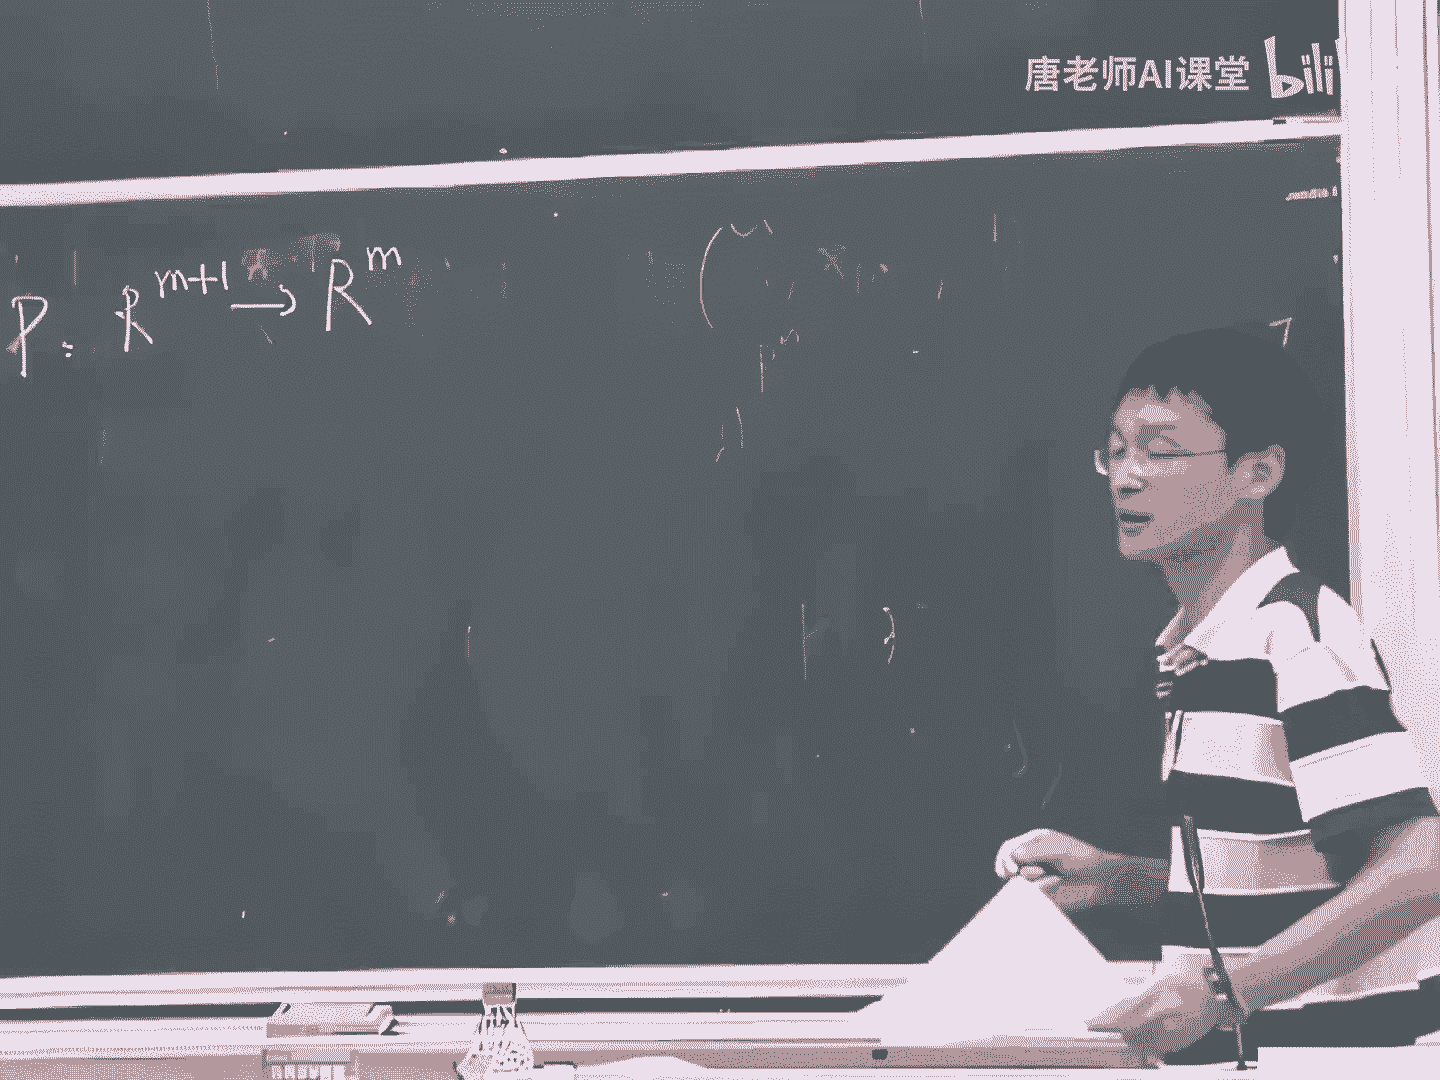 唐老师AI课堂 bili
P: R^{m+1} → R^m